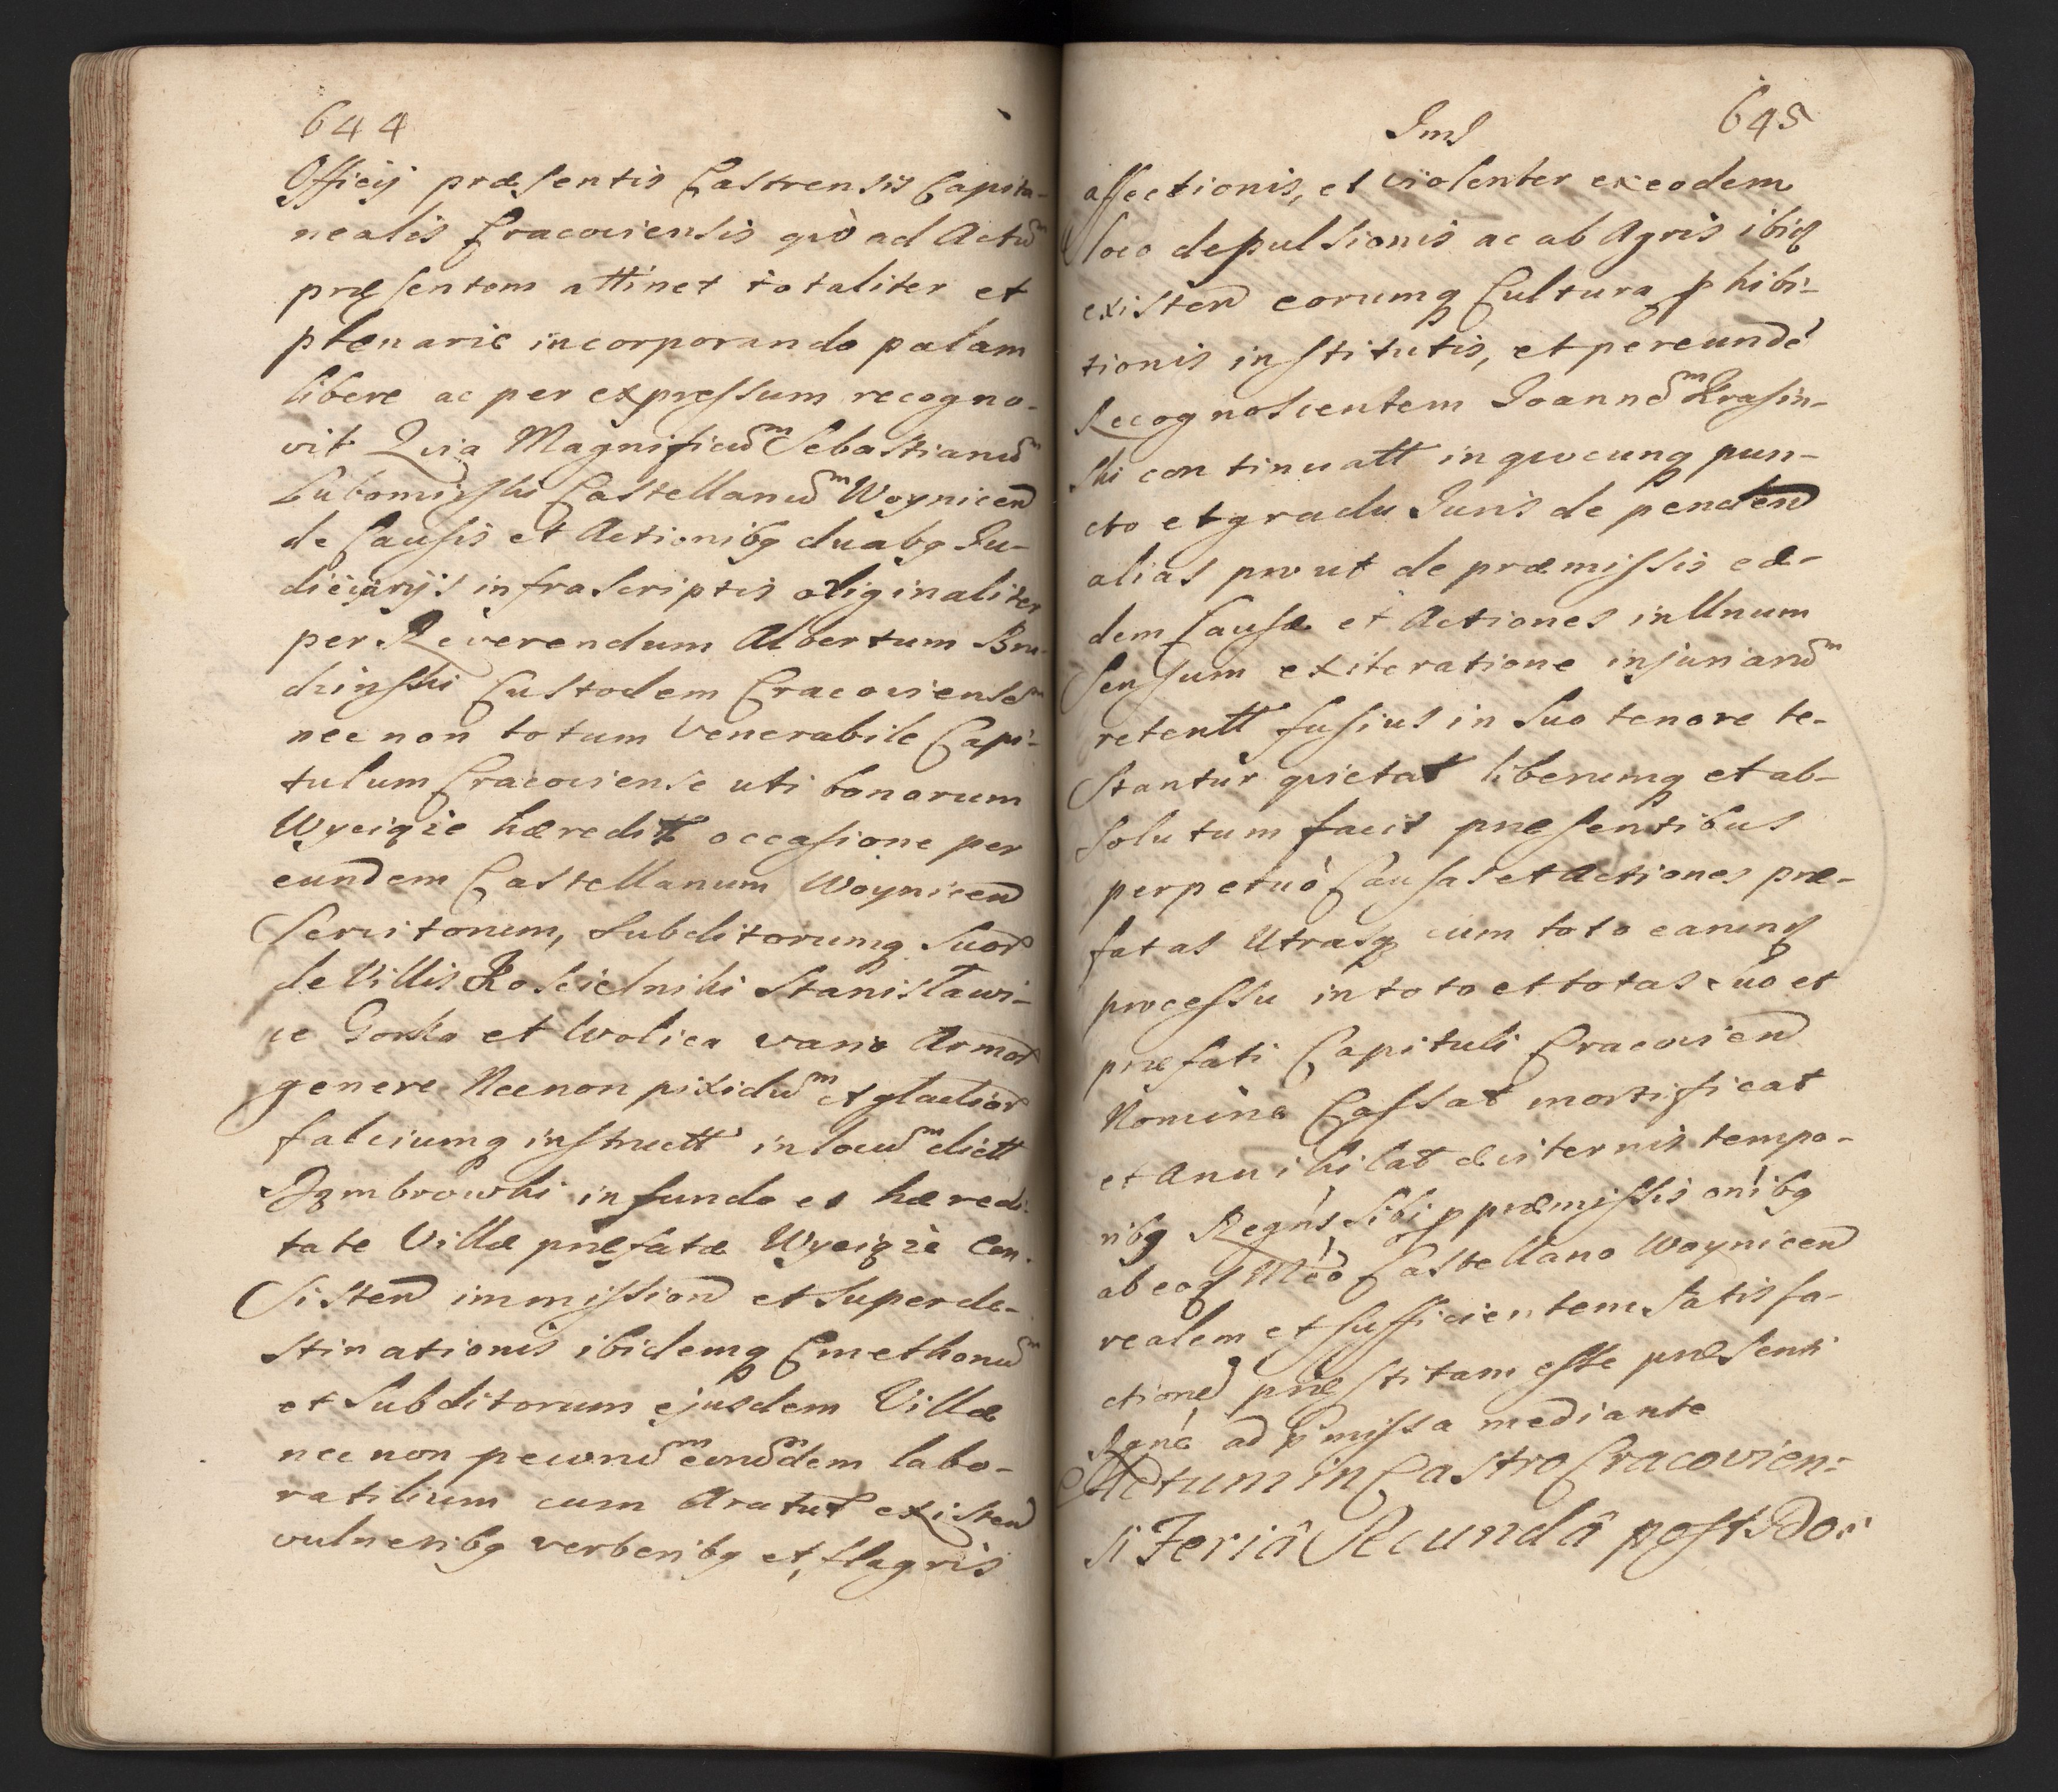 644
Officij præsentis Castrensis Capita-
nealis Cracoviensis quò ad Actũm
præsentem attinet totaliter et
plenarie incorporando palam
libere ac per expressum recogno-
vit Quia Magnificũm Sebastianũm
Lubomirski Castellanũm Woynicen̄
de Causis et Actionibq duabq Ju-
diciarijs infrascriptis originaliter
per Reverendum Albertum Bru-
dzinski Custodem Cracoviensēm
nec non totum Venerabile Capi-
tulum Cracoviense uti bonorum
Wyciąze hæreditt occasione per
eundem Castellanum Woynicen̄
Servitorum, Subditorumq Suor
de Villis Koscielniki Stanisławi-
ce Gorka et Wolica vario Armor
genere Necnon pixidũm et gladior
falciumq instructt in locũm dictt
Dąmbrowki in fundo et hæredi-
tate Villæ præfatæ Wyciąze Con-
sisten̄ immission̄ et superde-
stinationis ibidemq Cmethonũm
et Subditorum ejusdem Villæ
nec non pecorũm eorũmdem labo-
ratilium cum Aratut existen̄
vulneribq verberibq et, flagris
Jmſ 645
affectionis, et violenter ex eodem
loco depulsionis ac ab Agris ibiq
existen̄ eorumq Cultura phibi-
tionis institutis, et per eundē
Recognoscentem Joannēm Krasin-
ski continuatt in quocunq pun-
cto et gradu Juris de penden̄
alias prout de præmissis eæ-
dem Causæ et Actiones in Unum
Sensum ex iteratione injuriarũm
retentt fusius in suo tenore te-
stantur quietat liberumq et ab-
solutum facit præsentibus
perpetuò Causas et Actiones præ-
fatas Utrasq cum toto earumq
processu in toto et totas suo et
præfati Capituli Cracovien̄
Nomine Cassat mortificat
et Annihilat æviternis tempo-
ribq Regńs sibi p præmissis oníbq
ab eoq Mco Castellano Woynicen̄
realem et sufficientem Satisfa-
ctionē præstitam esse præsenti
Rgne ad pmissa mediante
Actum in Castro Cracovien:
si Feriâ Secundâ post Do: